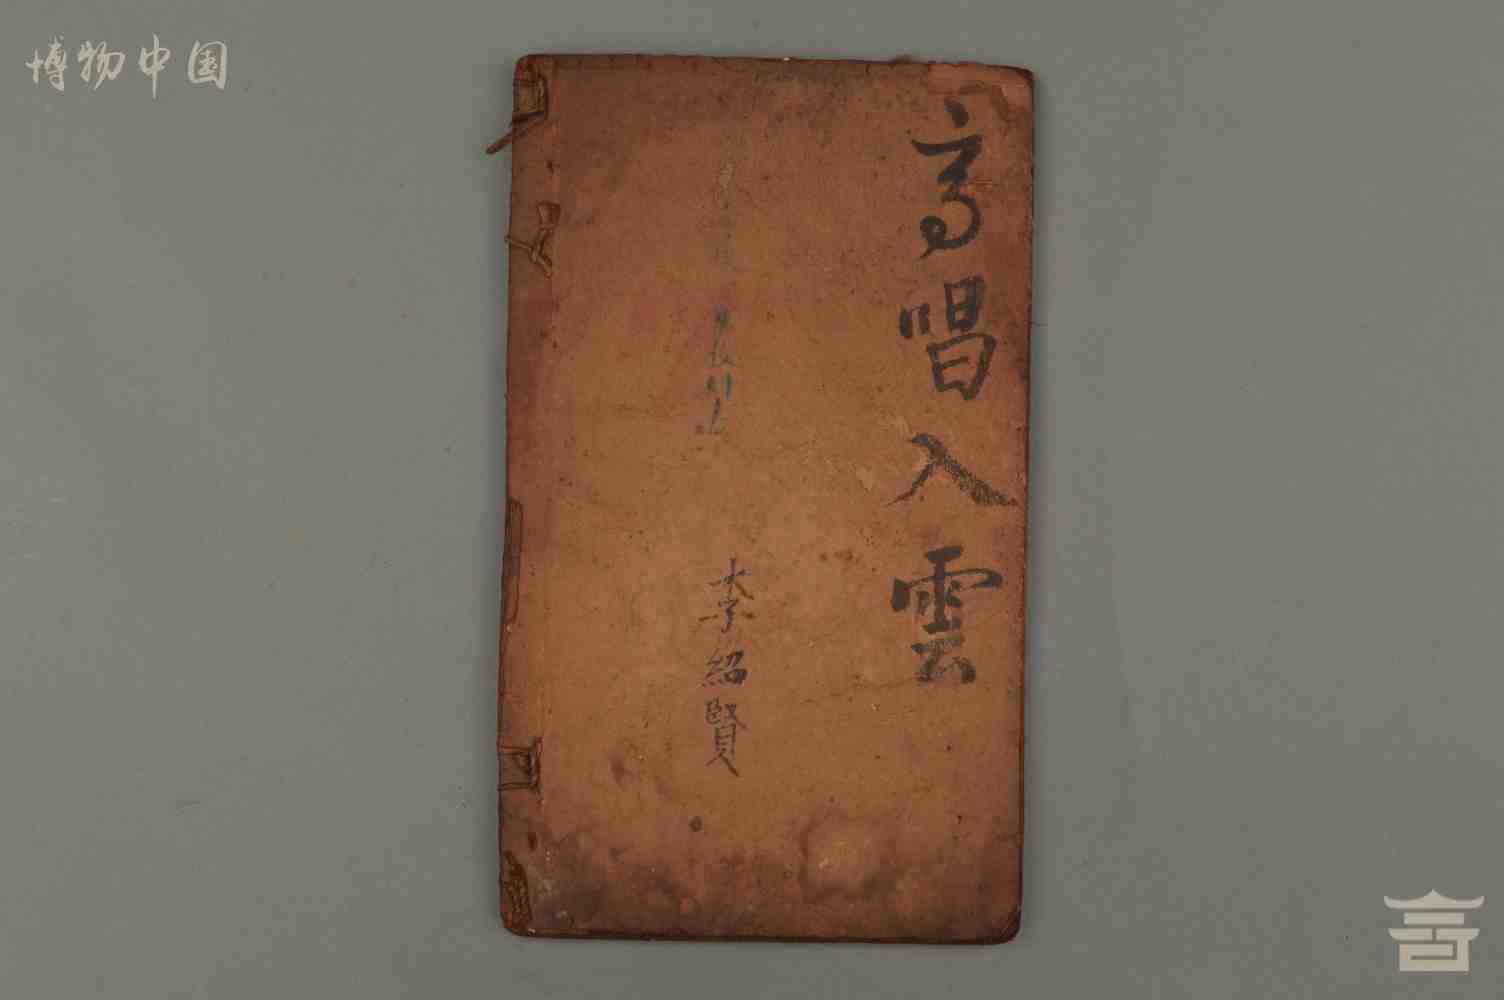 博物中国
高唱入雲
李紹賢